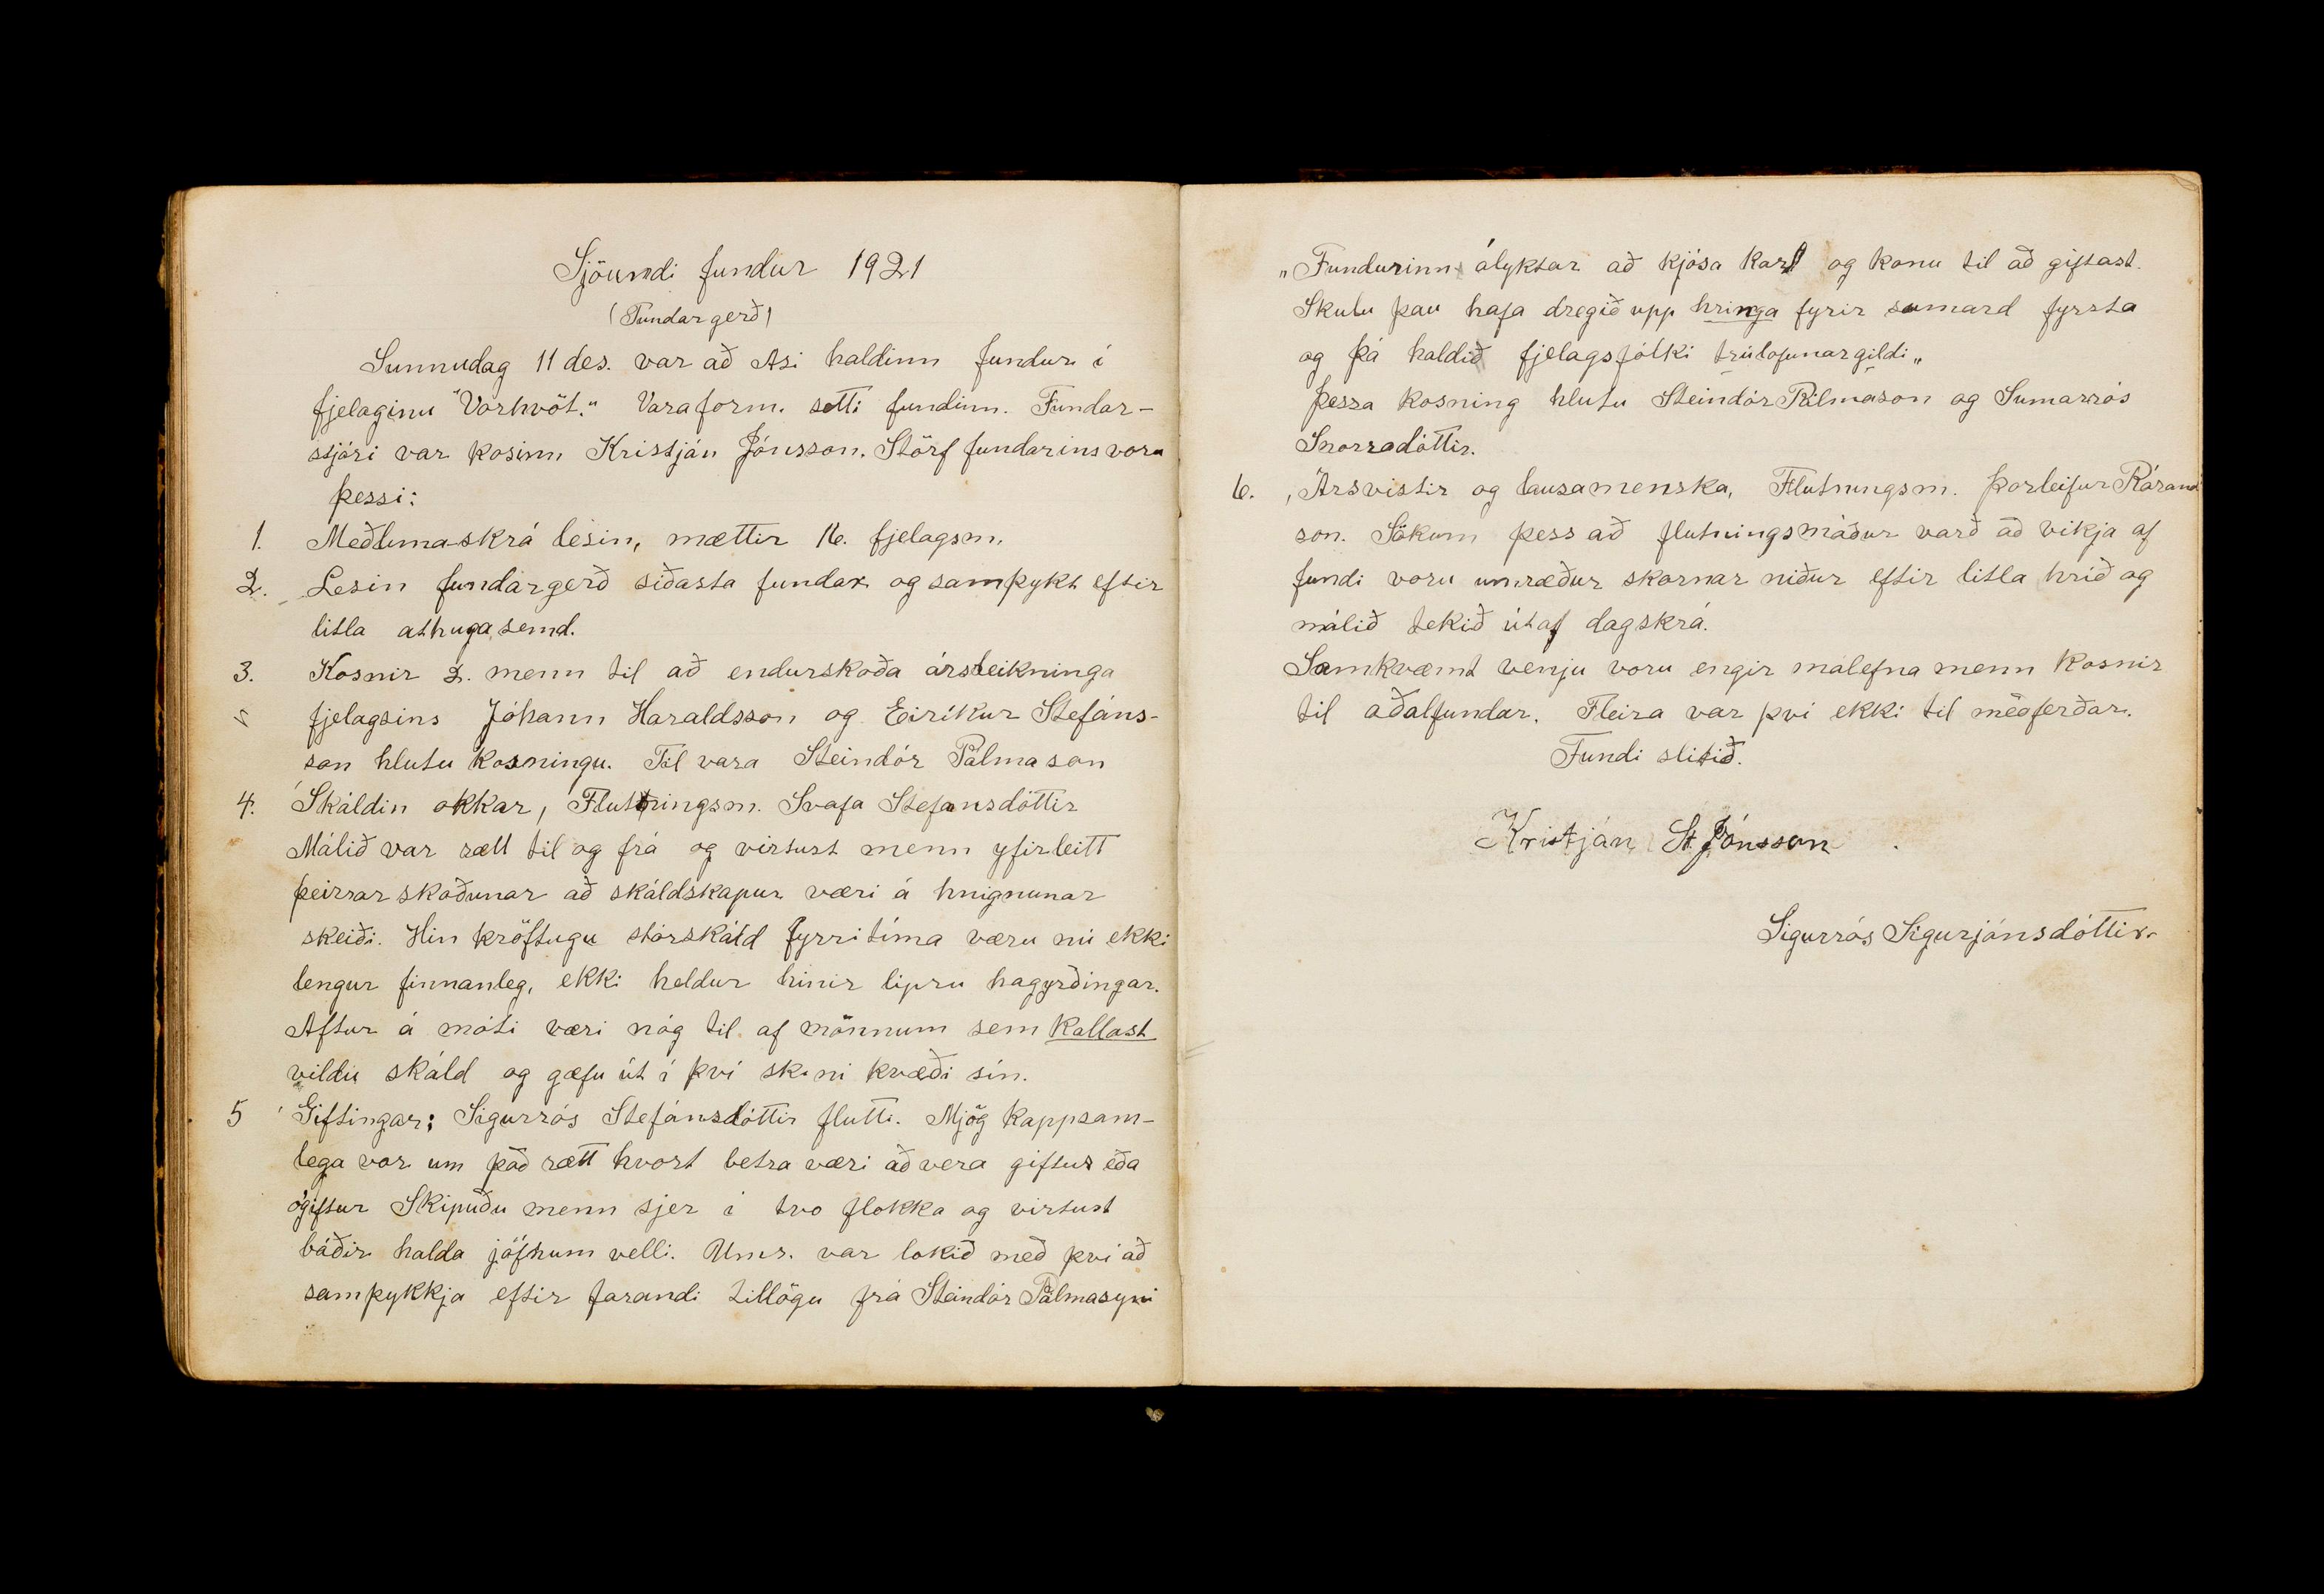 Sjöundi fundur 1921
(Fundargerð)
Sunnudag 11 des. var að Ási haldinn fundur í
fjelaginu "Vorhvöt." Varaform. setti fundinn. Fundar-
stjóri var kosinn Kristján Jónsson. Störf fundarins voru
þessi:
1. Meðlimaskrá lesin, mættir 16. fjelagsm.
2. Lesin fundargerð síðasta fundar og samþykt eftir
litla athugasemd.
3. Kosnir 2. menn til að endurskoða ársreikninga
fjelagsins Jóhann Haraldsson og Eiríkur Stefáns-
son hlutu kosningu. Til vara Steindór Pálmason
4. Skáldin okkar, Flutningsm. Svafa Stefansdóttir
Málið var rætt til og frá og virtust menn yfirleitt
þeirrar skoðunar að skáldskapur væri á hnignunar
skeiði. Hin kröftugu stórskáld fyrri tíma væru nú ekki
lengur finnanleg, ekki heldur hinir lipru hagyrðingar.
Aftur á móti væri nóg til af mönnum sem kallast
vildu skáld og gæfu út í því skini kvæði sín.
5 Giftingar; Sigurrós Stefánsdóttir flutti. Mjög kappsam-
lega var um það rætt hvort betra væri að vera giftur eða
ógiftur Skipuðu menn sjer í tvo flokka og virtust
báðir halda jöfnum velli. Umr. var lokið með því að
samþykkja eftir farandi tillögu frá Steindór Pálmasyni
„Fundurinn ályktar að kjósa karl og konu til að giftast.
Skulu þau hafa dregið upp hringa fyrir sumard fyrsta
og þá haldið fjelagsfólki trúlofunargildi„
Þessa kosning hlutu Steindór Pálmason og Sumarrós
Snorradóttir.
6. Ársvistir og lausamenska, Flutningsm. Þorleifur Rósant
son. Sökum þess að flutningsmaður varð að víkja af
fundi voru umræður skornar niður eftir litla hríð og
málið tekið útaf dagskrá.
Samkvæmt venju voru engir malefna menn kosnir
til aðalfundar. Fleira var því ekki til meðferðar.
Fundi slitið.
Kristján St Jónsson
Sigurrós Sigurjónsdóttir